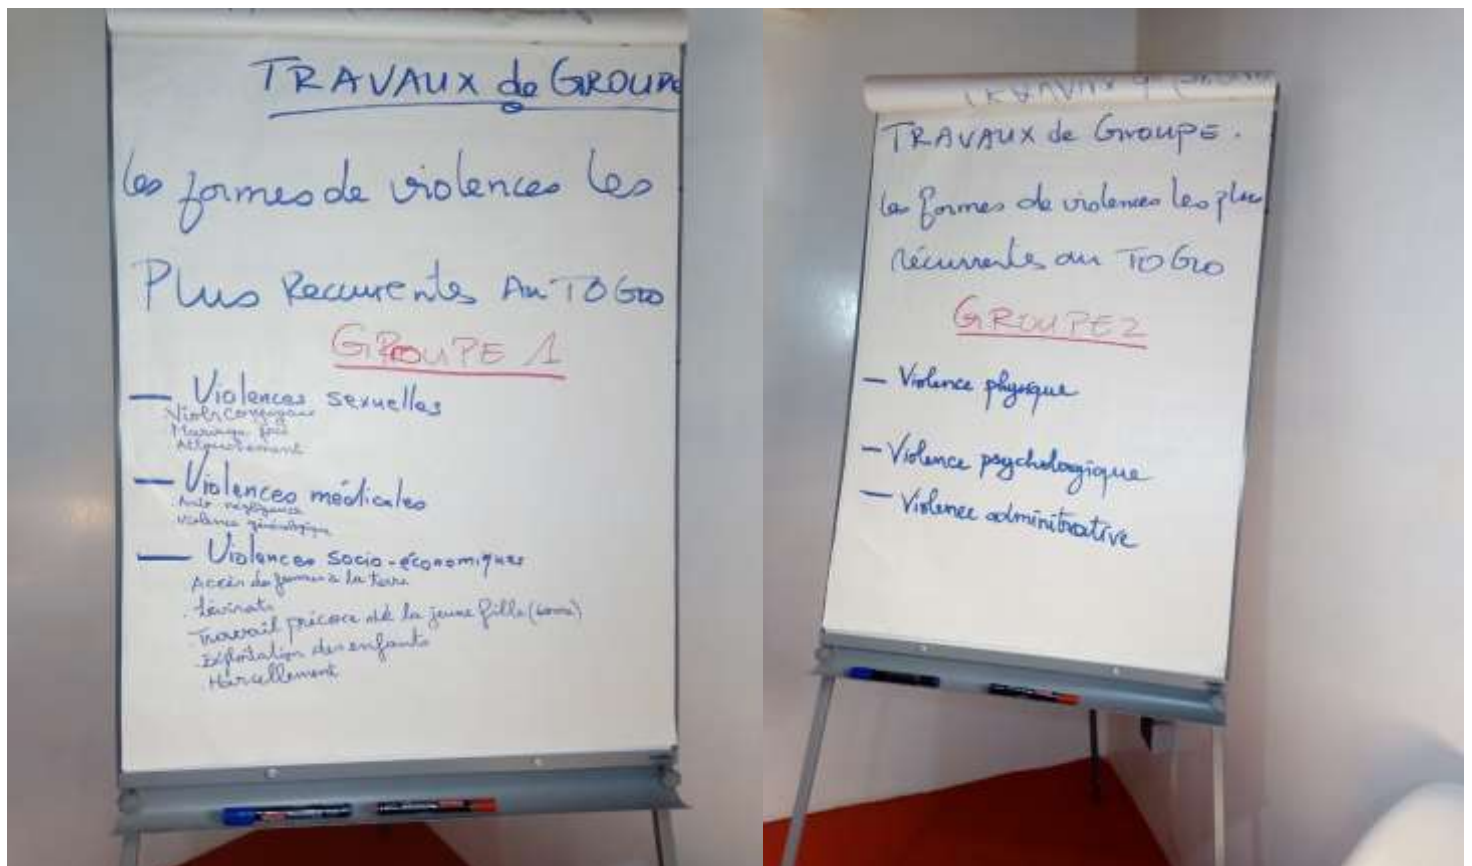 TRAVAUX de GROUPE
Les formes de violences les
Plus Recurentes Au TOGO
GROUPE 1
— Violences sexuelles
Viols conjugaux
Mariage
Attouchement
— Violences médicales
négligence
Violence gynécologique
— Violences socio-économiques
Accès des femmes à la terre
. Lévirat
. Travail précoce de la jeune fille
. Exploitation des enfants
. Harcellement
TRAVAUX de GROUPE.
Les formes de violences les plus
récurrentes au TOGO
GROUPE 2
— Violence physique
— Violence psychologique
— Violence adminitrative